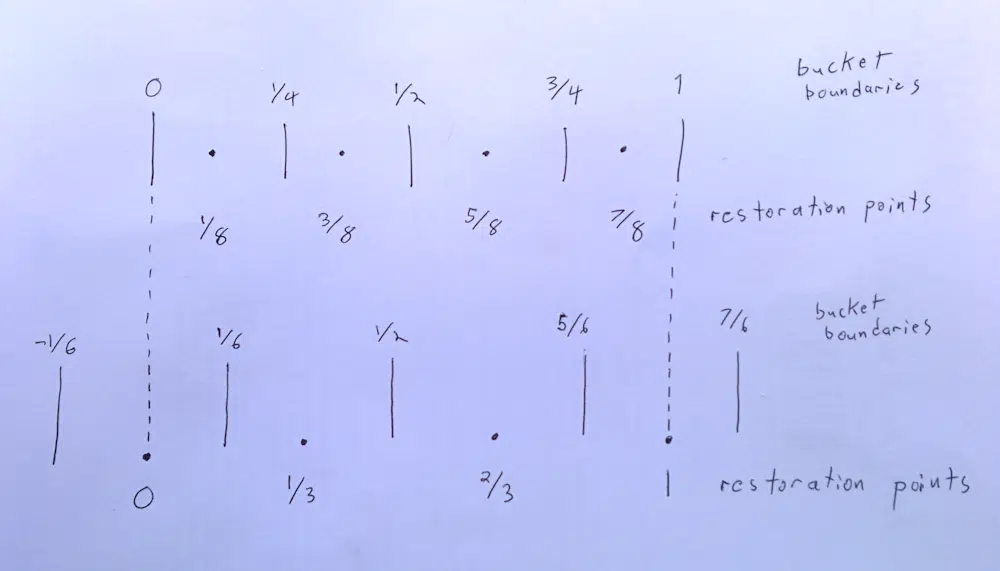 0 1/4 1/2 3/4 1
bucket
boundaries
1/8 3/8 5/8 7/8
restoration points
-1/6 1/6 1/2 5/6 7/6
bucket
boundaries
0 1/3 2/3 1
restoration points